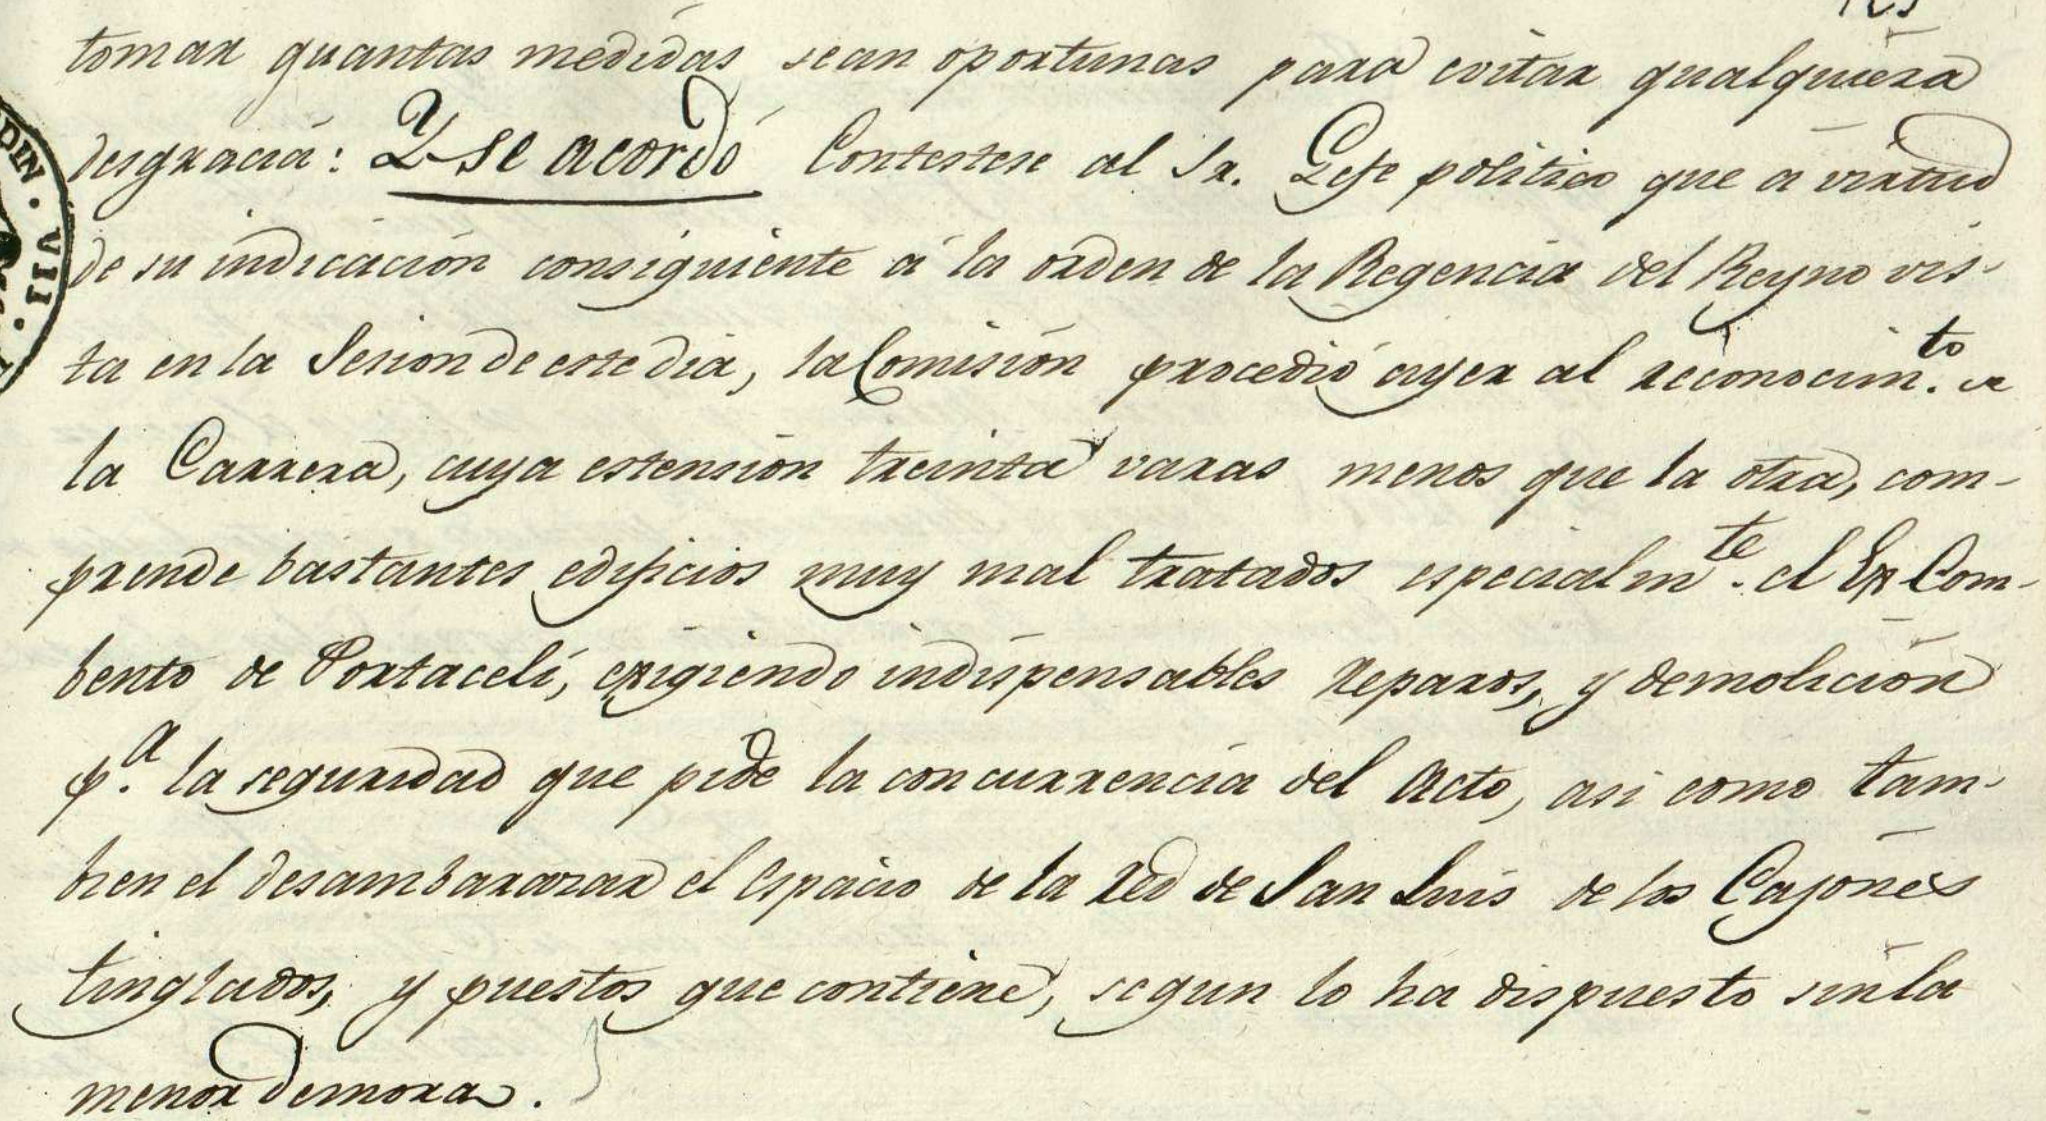 tomar quantas medidas sean oportunas para evitar qualquiera
desgracia: Y se acordó Contestese al Sr. Gefe politico que á virtud
de su indicación consiguiente á la orden de la Regencia del Reyno vis-
ta en la Sesion de este dia, la Comisión procedió ayer al reconocim.to de
la Carrera, cuya estensión treinta varas menos que la otra, com-
prende bastantes edificios muy mal tratados especialm.te el Ex Com-
bento de Portaceli, exigiendo indispensables reparos, y demolición
p.a la seguridad que pide la concurrencia del Acto, asi como tam-
bien el desambarazar el espacio de la red de San Luis de los Cajones
tinglados, y puestos que contiene, segun lo ha dispuesto sin la
menor demora.
DIN. VII.